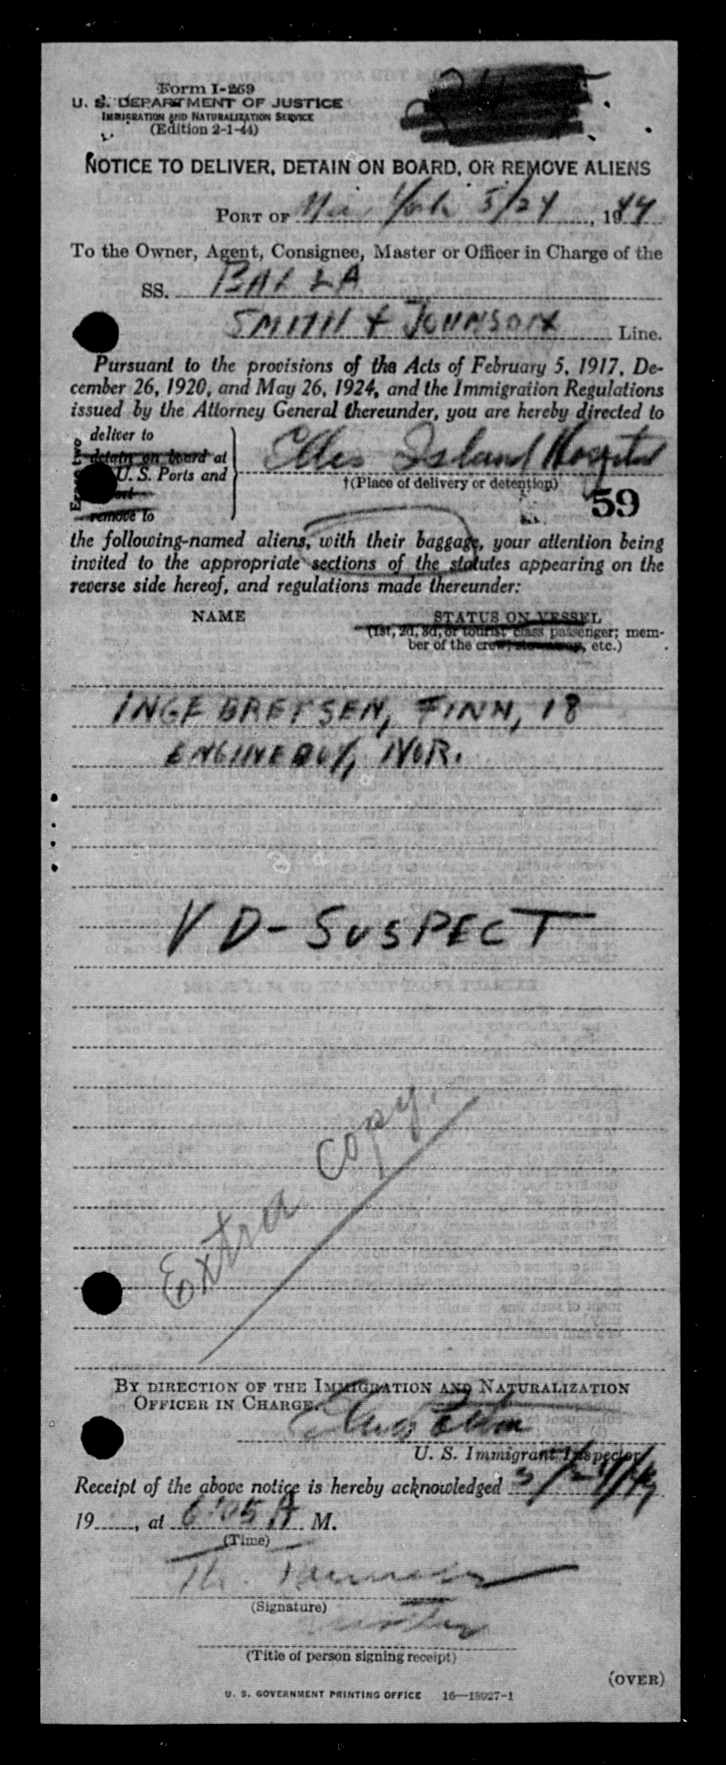 Form I-259
U. S. DEPARTMENT OF JUSTICE
IMMIGRATION AND NATURALIZATION SERVICE
(Edition 2-1-44)
NOTICE TO DELIVER, DETAIN ON BOARD, OR REMOVE ALIENS
PORT OF New York 5/24, 1944
To the Owner, Agent, Consignee, Master or Officer in Charge of the
SS.
SMITH & JOHNSON Line.
Pursuant to the provisions of the Acts of February 5, 1917, De-
cember 26, 1920, and May 26, 1924, and the Immigration Regulations
issued by the Attorney General thereunder, you are hereby directed to
deliver to
detain on board at Ellis Island Hospital
U. S. Ports and
†(Place of delivery or detention)
remove to
59
the following-named aliens, with their baggage, your attention being
invited to the appropriate sections of the statutes appearing on the
reverse side hereof, and regulations made thereunder:
NAME STATUS ON VESSEL
(1st, 2d, 3d, or tourist class passenger; mem-
ber of the crew, etc.)
INGEBRETSEN, FINN, 18
ENGINEBOY, NOR.
VD-SUSPECT
Extra copy.
BY DIRECTION OF THE IMMIGRATION AND NATURALIZATION
OFFICER IN CHARGE.
U. S. Immigrant Inspector
Receipt of the above notice is hereby acknowledged 5/24/44
19......, at 6:05 A M.
(Time)
(Signature)
(Title of person signing receipt)
(OVER)
U. S. GOVERNMENT PRINTING OFFICE 16—18027-1